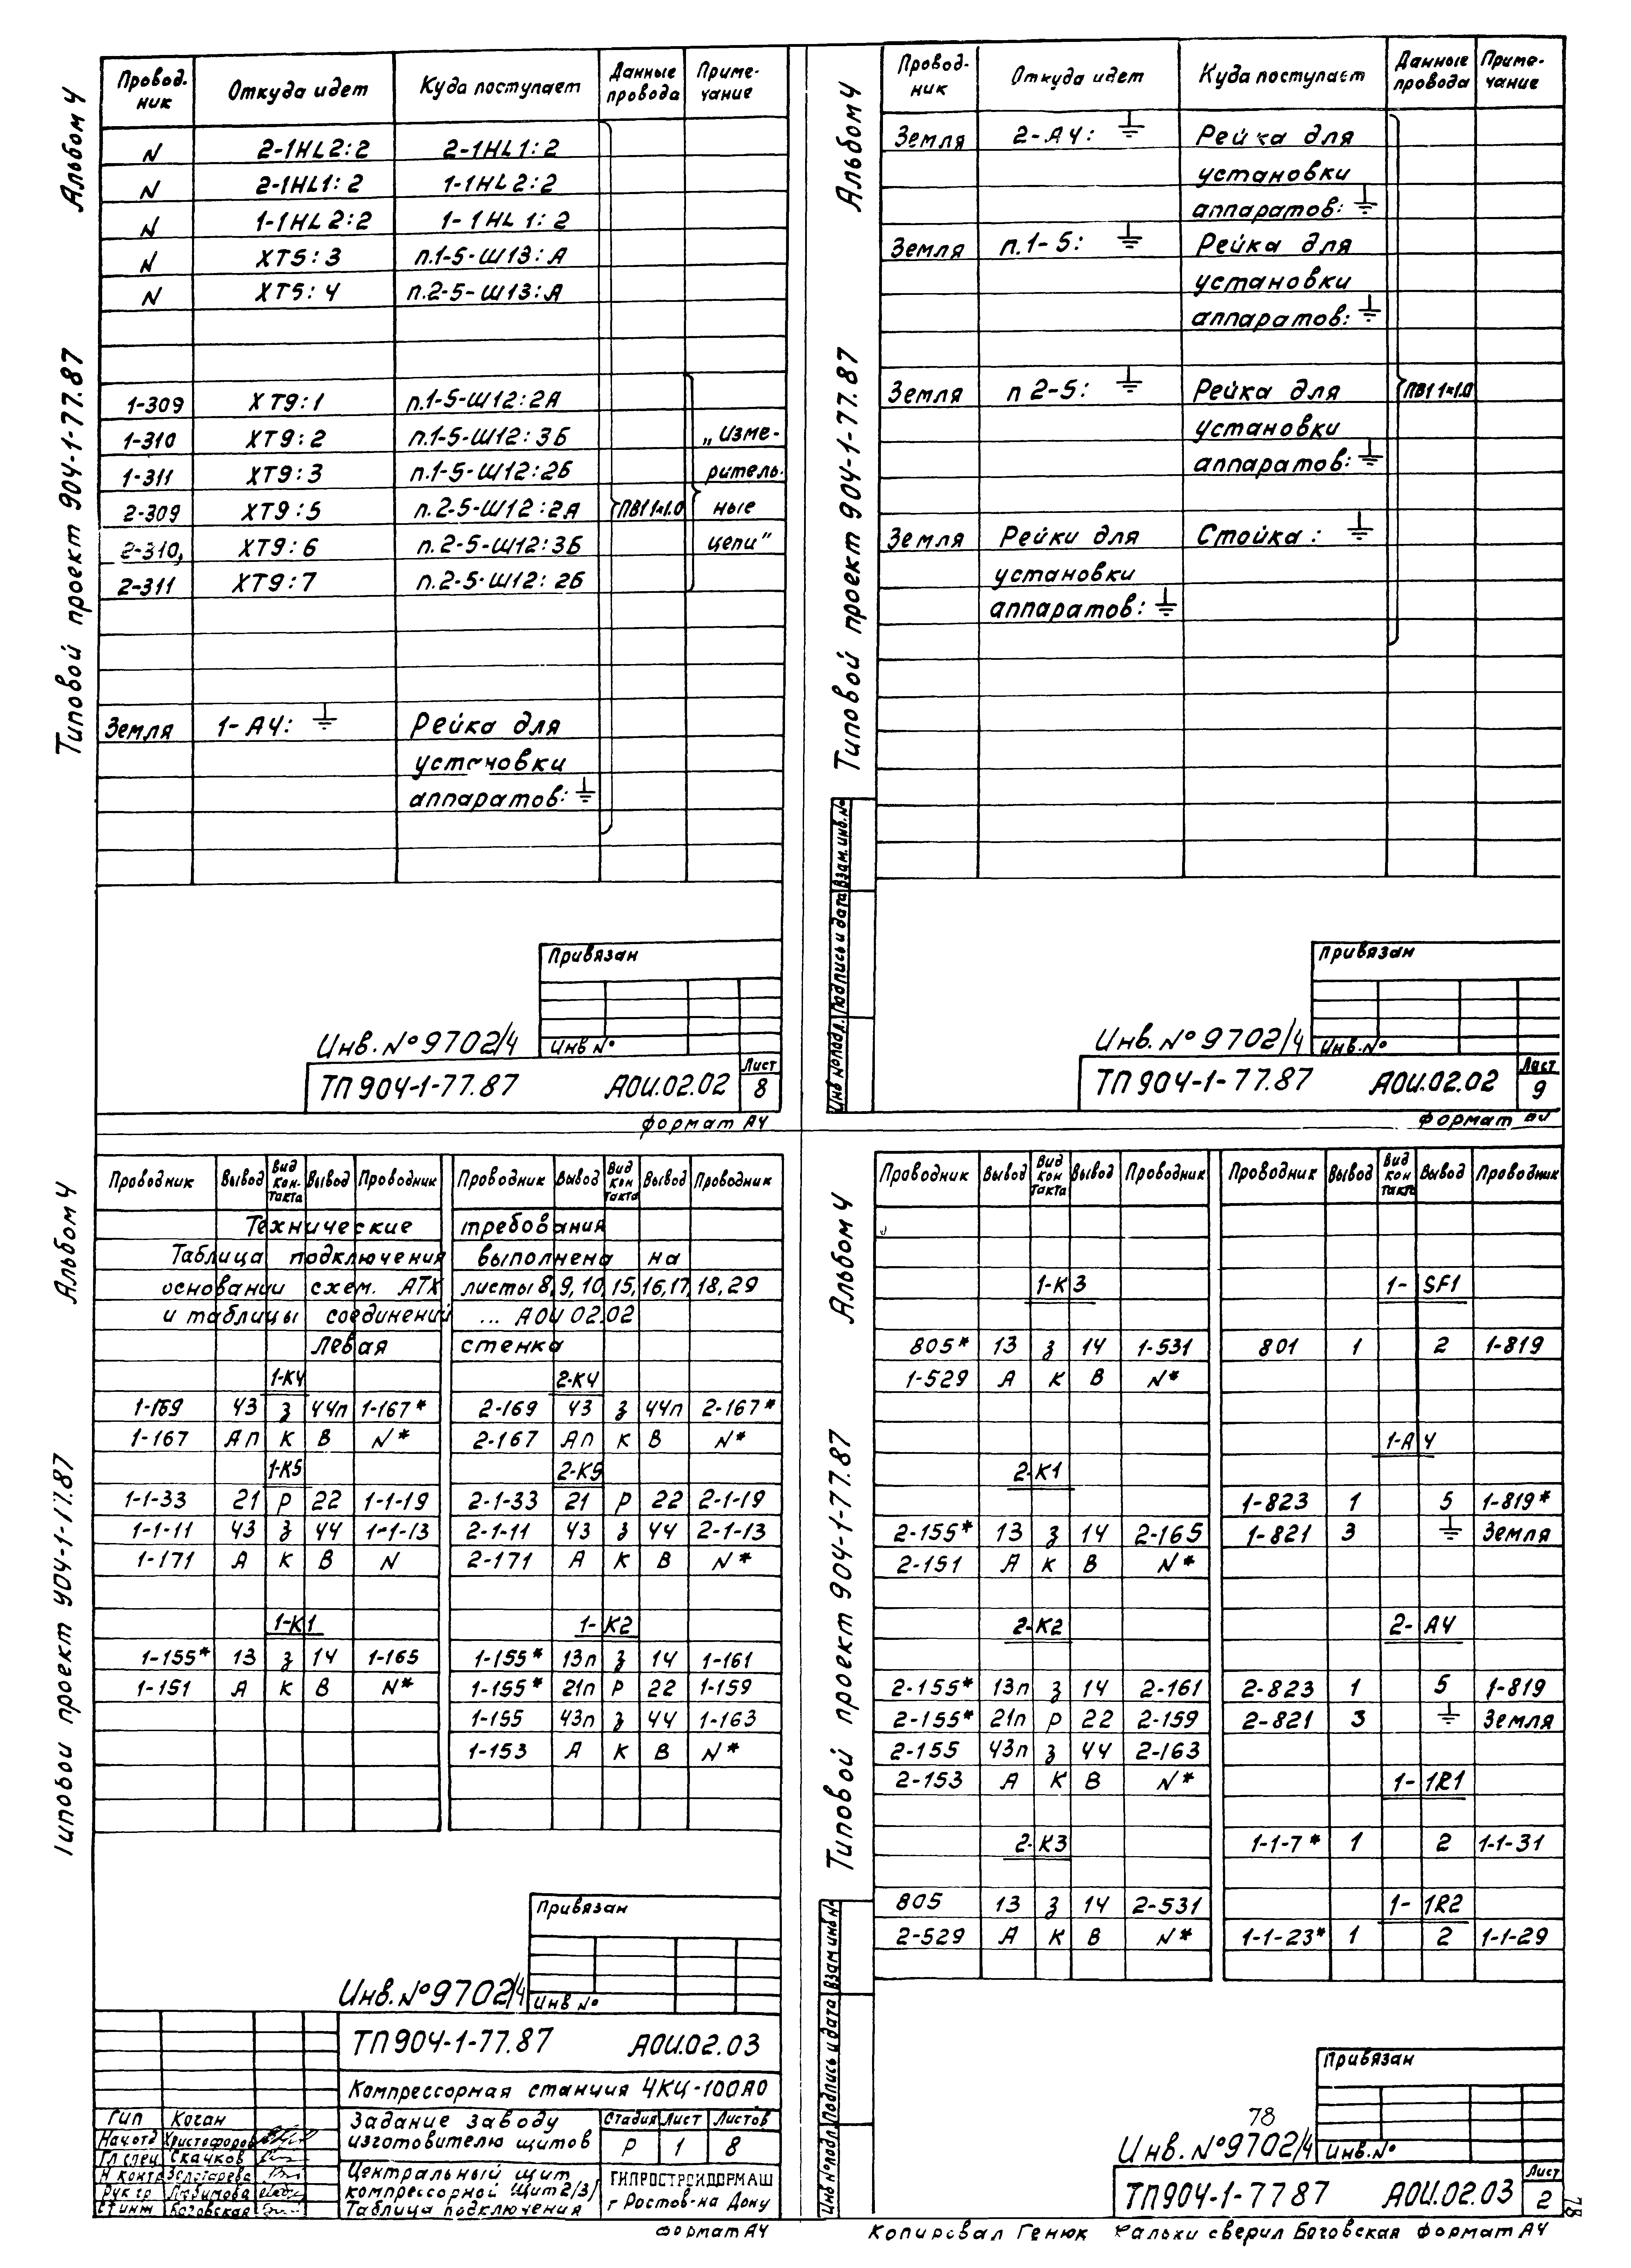 Альбом 4
Типовой проект 904-1-77.87
Провод-ник | Откуда идет | Куда поступает | Данные провода | Приме-чание
N | 2-1HL2:2 | 2-1HL1:2
N | 2-1HL1:2 | 1-1HL2:2
N | 1-1HL2:2 | 1-1HL1:2
N | XT5:3 | п.1-5-Ш13:А
N | XT5:4 | п.2-5-Ш13:А
1-309 | XT9:1 | п.1-5-Ш12:2А
1-310 | XT9:2 | п.1-5-Ш12:3Б | „Изме-
1-311 | XT9:3 | п.1-5-Ш12:2Б | ритель-
2-309 | XT9:5 | п.2-5-Ш12:2А | ПВ1 1×1.0 | ные
2-310, | XT9:6 | п.2-5-Ш12:3Б | цепи"
2-311 | XT9:7 | п.2-5-Ш12:2Б
Земля | 1-А4: ⏚ | Рейка для
установки
аппаратов: ⏚
Привязан
Инв.№9702/4
Инв №
ТП904-1-77.87 АОИ.02.02
Лист
8
формат А4
Альбом 4
Типовой проект 904-1-77.87
Провод-ник | Откуда идет | Куда поступает | Данные провода | Приме-чание
Земля | 2-А4: ⏚ | Рейка для
установки
аппаратов: ⏚
Земля | п.1-5: ⏚ | Рейка для
установки
аппаратов: ⏚
Земля | п 2-5: ⏚ | Рейка для | ПВ1 1×1.0
установки
аппаратов: ⏚
Земля | Рейки для | Стойка: ⏚
установки
аппаратов: ⏚
Инв №подл. Подпись и дата Взам.инв.№
Привязан
Инв.№9702/4
Инв.№
ТП904-1-77.87 АОИ.02.02
Лист
9
формат А4
Альбом 4
Типовой проект 904-1-77.87
Проводник | Вывод | Вид кон-такта | Вывод | Проводник | Проводник | Вывод | Вид кон такта | Вывод | Проводник
Технические требования
Таблица подключения выполнена на
основании схем. АТХ листы 8,9,10,15,16,17,18,29
и таблицы соединений ... АОИ 02.02
Левая стенка
1-К4 | 2-К4
1-169 | 43 | з | 44п | 1-167* | 2-169 | 43 | з | 44п | 2-167*
1-167 | Ап | К | В | N* | 2-167 | Ап | К | В | N*
1-К5 | 2-К5
1-1-33 | 21 | Р | 22 | 1-1-19 | 2-1-33 | 21 | Р | 22 | 2-1-19
1-1-11 | 43 | з | 44 | 1-1-13 | 2-1-11 | 43 | з | 44 | 2-1-13
1-171 | А | К | В | N | 2-171 | А | К | В | N*
1-К1 | 1-К2
1-155* | 13 | з | 14 | 1-165 | 1-155* | 13п | з | 14 | 1-161
1-151 | А | К | В | N* | 1-155* | 21п | Р | 22 | 1-159
1-155 | 43п | з | 44 | 1-163
1-153 | А | К | В | N*
Привязан
Инв.№9702/4
Инв №
ТП904-1-77.87 АОИ.02.03
Компрессорная станция 4КЦ-100А0
Гип Коган
Нач.отд Христофоров
Гл спец Скачков
Н контр Золотарева
Рук гр Любимова
Ст инж Боговская
Задание заводу
изготовителю щитов
Стадия Лист Листов
Р 1 8
Центральный щит
компрессорной Щит2(3)
Таблица подключения
ГИПРОСТРОЙДОРМАШ
г Ростов-на Дону
формат А4
Альбом 4
Типовой проект 904-1-77.87
Проводник | Вывод | Вид кон такта | Вывод | Проводник | Проводник | Вывод | Вид кон такта | Вывод | Проводник
1-К3 | 1-SF1
805* | 13 | з | 14 | 1-531 | 801 | 1 | 2 | 1-819
1-529 | А | К | В | N*
1-А4
2-К1
1-823 | 1 | 5 | 1-819*
2-155* | 13 | з | 14 | 2-165 | 1-821 | 3 | ⏚ | Земля
2-151 | А | К | В | N*
2-К2 | 2-А4
2-155* | 13п | з | 14 | 2-161 | 2-823 | 1 | 5 | 1-819
2-155* | 21п | Р | 22 | 2-159 | 2-821 | 3 | ⏚ | Земля
2-155 | 43п | з | 44 | 2-163
2-153 | А | К | В | N* | 1-1R1
2-К3 | 1-1-7* | 1 | 2 | 1-1-31
805 | 13 | з | 14 | 2-531 | 1-1R2
2-529 | А | К | В | N* | 1-1-23* | 1 | 2 | 1-1-29
Инв №подл. Подпись и дата Взам инв №
Привязан
78
Инв.№9702/4
Инв.№
ТП904-1-77 87 АОИ.02.03
Лист
2
78
Копировал Генюк Кальки сверил Боговская Формат А4